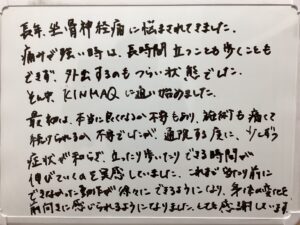 長年、坐骨神経痛に悩まされてきました。
痛みが強い時は、長時間立つことも歩くことも
できず、外出するのもつらい状態でした。
そんな中、KINMAQに通い始めました。
最初は、本当に良くなるか不安もあり、施術も痛くて
続けられるか不安でしたが、通院する度に、少しずつ
症状が和らぎ、立ったり歩いたりできる時間が
伸びていくのを実感していました。これまで当たり前に
できなかった動作が徐々にできるようになり、身体の変化を
前向きに感じられるようになりました。とても感謝しています